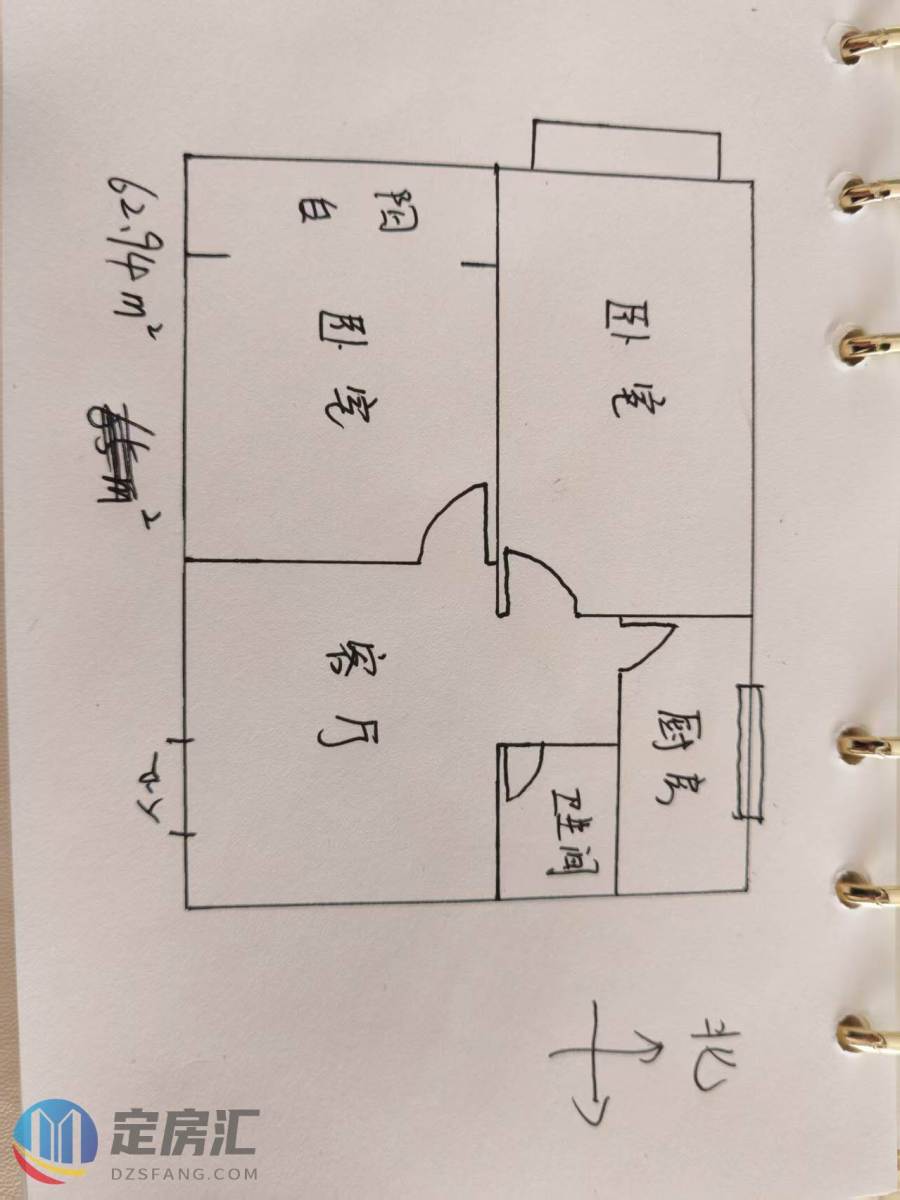 北
厨房
卧室
卫生间
阳
台
卧室
客厅
62.94m²
定房汇
DZSFANG.COM